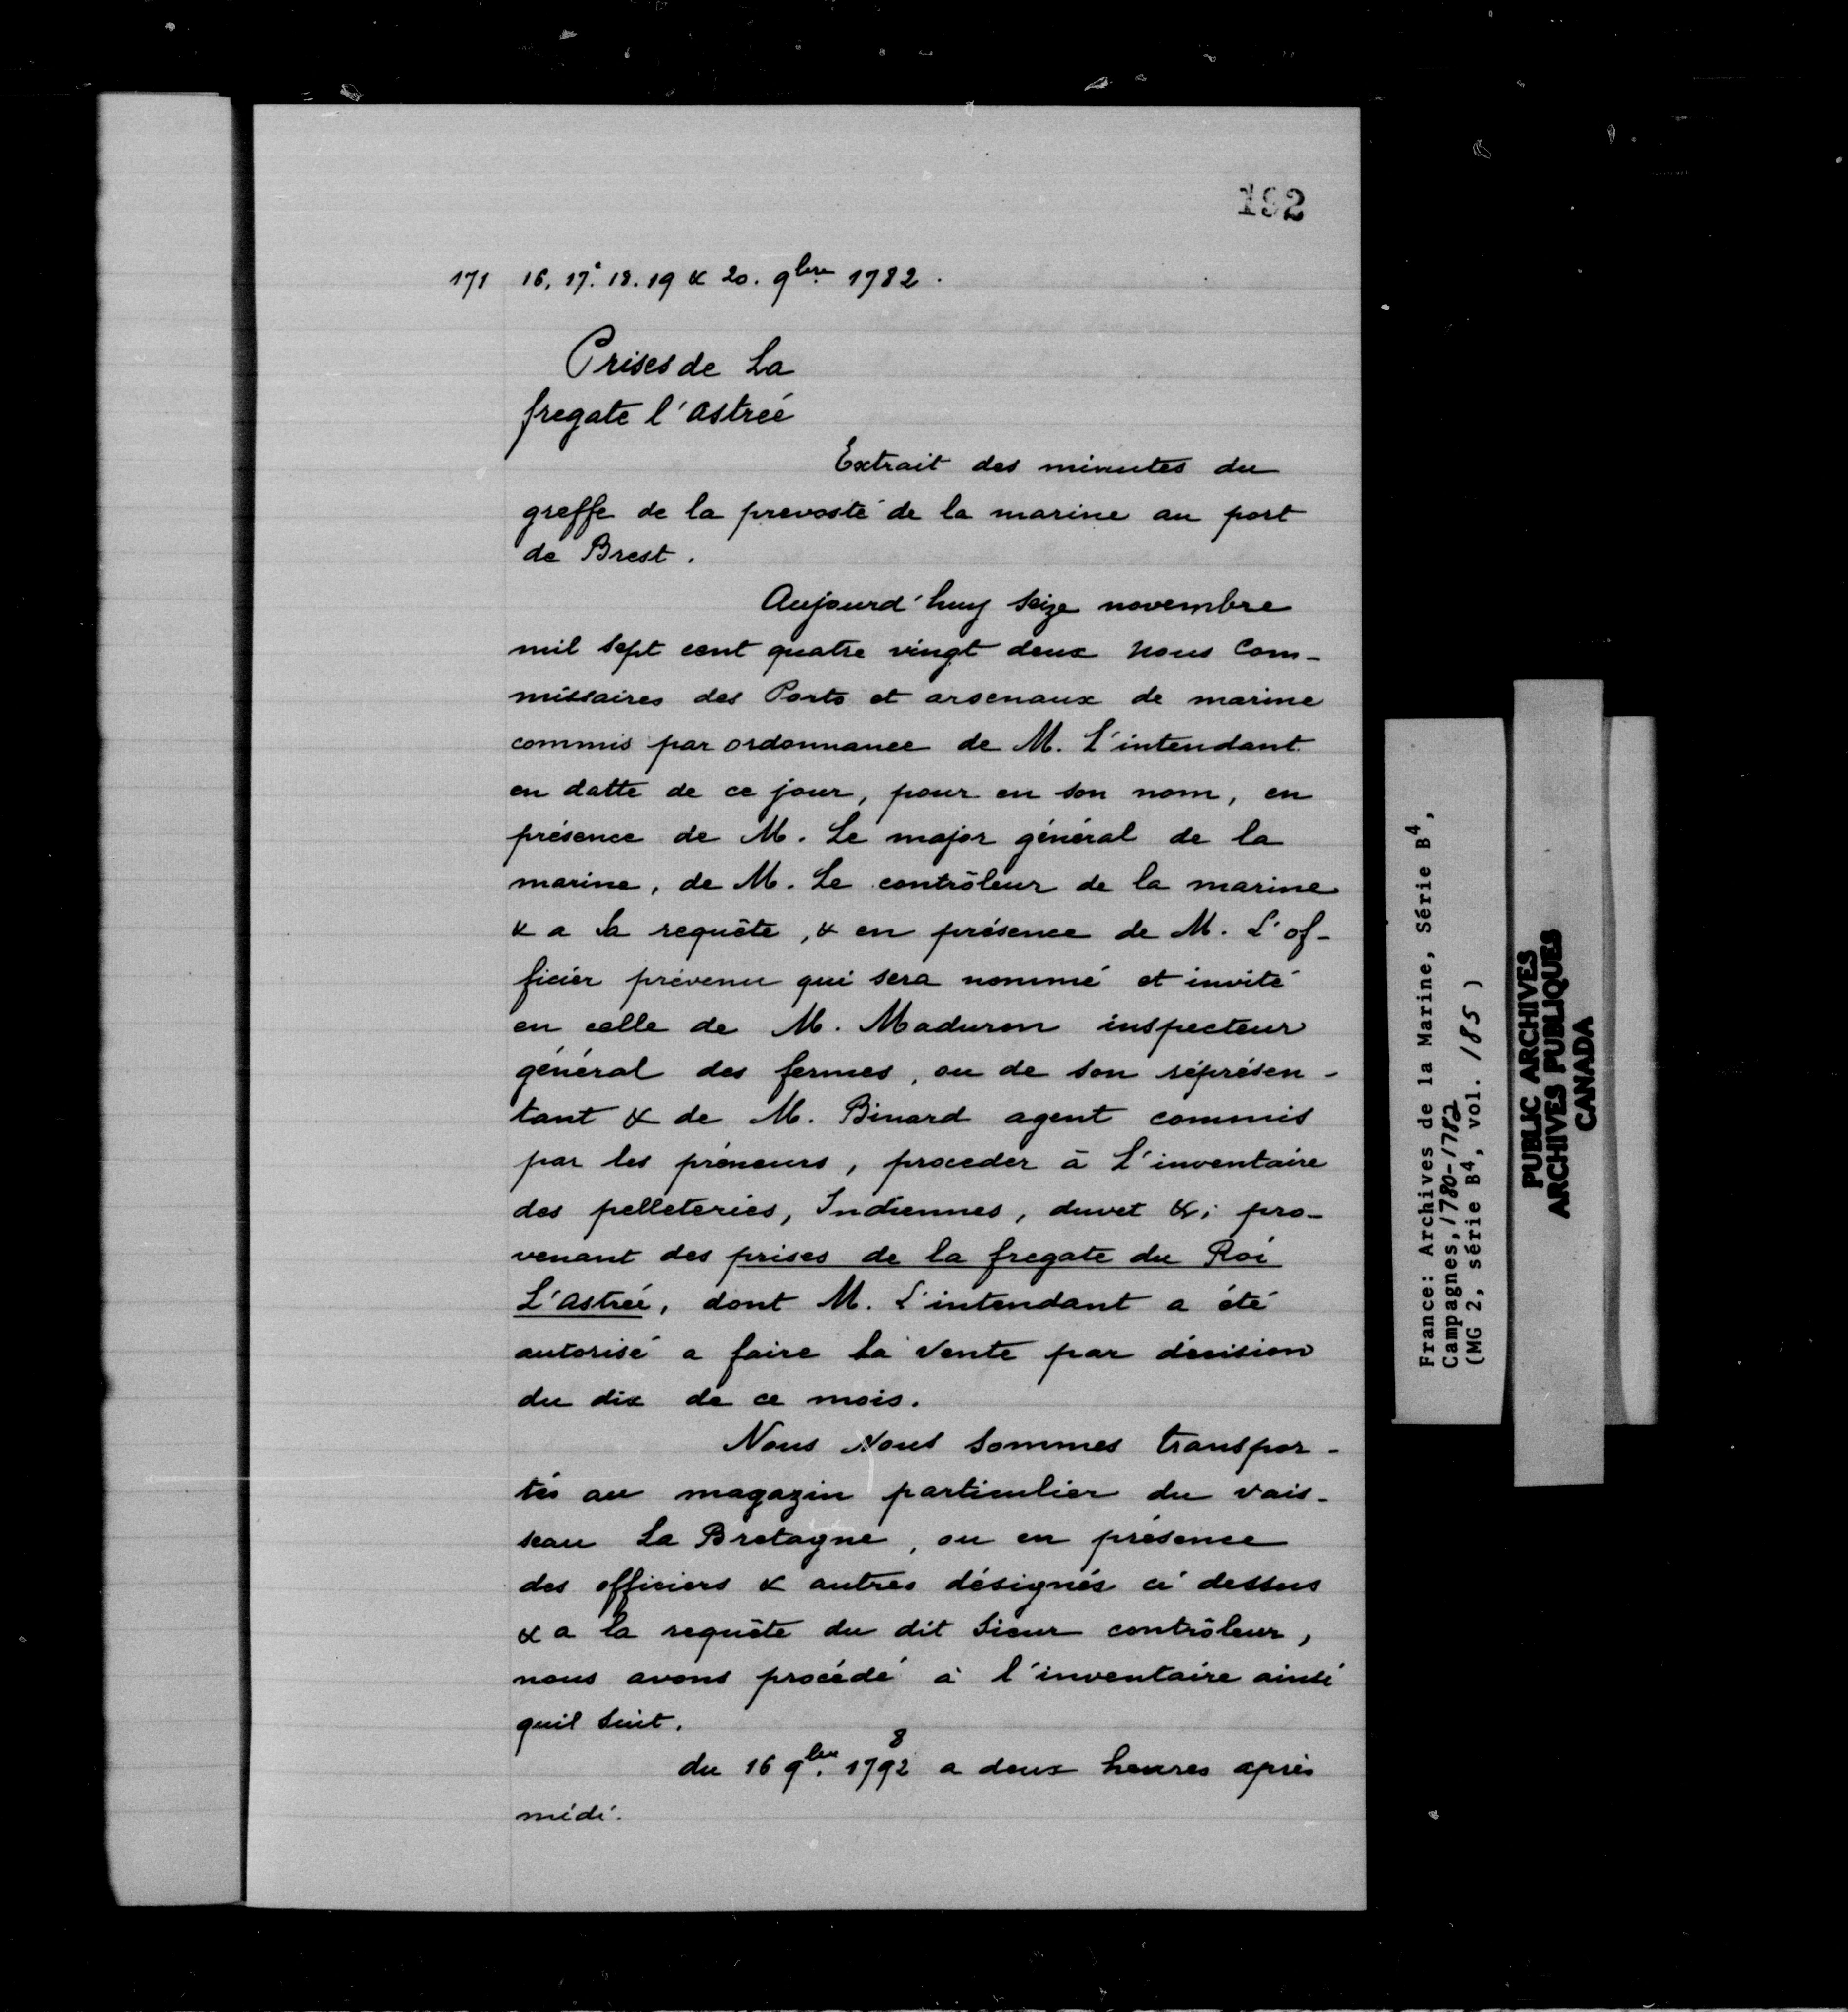 192
171 16. 17. 18. 19 & 20. 9bre 1782.
Prises de La
fregate l'astreé
Extrait des minutes du
greffe de la prevosté de la marine au port
de Brest.
Aujourd'huy seize novembre
mil sept cent quatre vingt deux nous Com-
missaires des Ports et arsenaux de marine
commis par ordonnance de M. L'intendant
en datte de ce jour, pour en son nom, en
présence de M. Le major général de la
marine, de M. Le contrôleur de la marine
& a sa requête, & en présence de M. L'of-
ficier prévenu qui sera nommé et invité
en celle de M. Maduron inspecteur
général des fermes, ou de son réprésen-
tant & de M. Binard agent commis
par les préneurs, proceder à L'inventaire
des pelleteries, Indiennes, duvet &; pro-
venant des prises de la fregate du Roi
L'astreé, dont M. L'intendant a été
autorisé a faire la Vente par décision
du dix de ce mois.
Nous Nous sommes transpor-
tés au magazin particulier du vais-
seau La Bretagne, ou en présence
des officiers & autres désignés ci dessus
& a la requête du dit Sieur contrôleur,
nous avons procédé à l'inventaire ainsi
quil suit.
8
du 16 9bre. 1792 a deux heures après
midi.
France: Archives de la Marine, Série B4,
Campagnes, 1780-1782
(MG 2, série B4, vol. 185)
PUBLIC ARCHIVES
ARCHIVES PUBLIQUES
CANADA